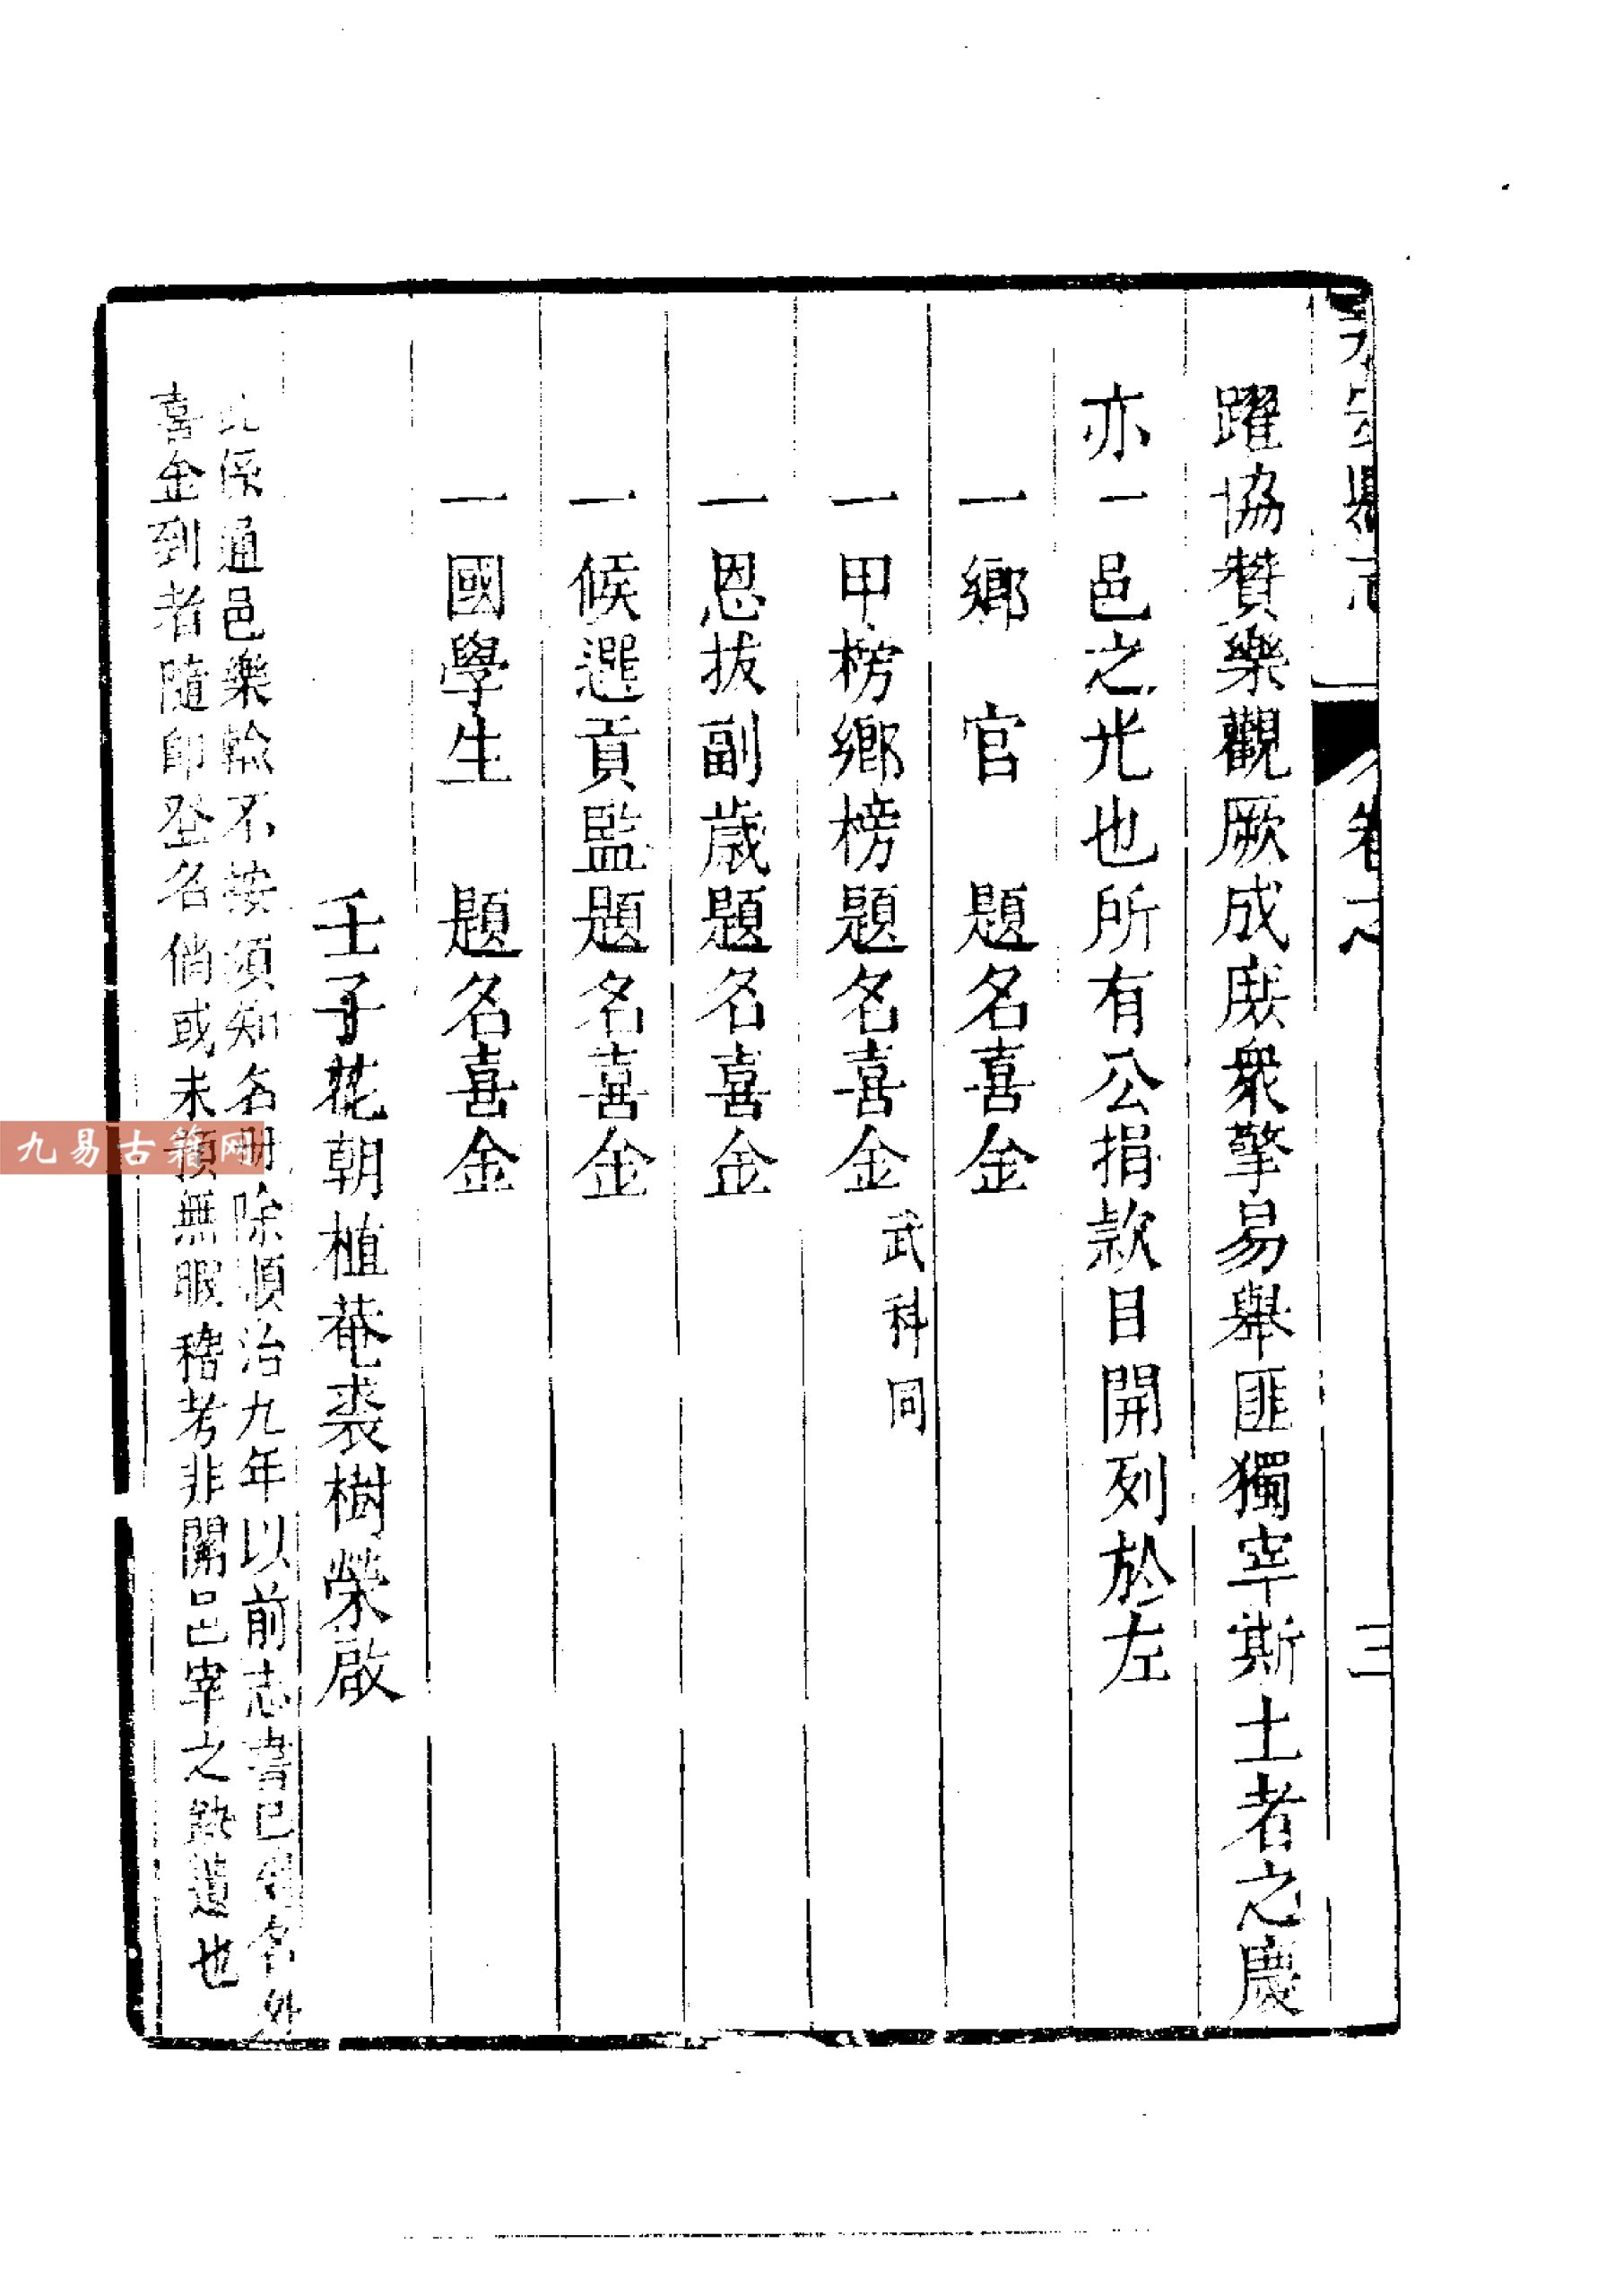 縣志
卷之
三
躍協贊樂觀厥成庶衆擎易舉匪獨宰斯土者之慶
亦一邑之光也所有公捐款目開列於左
一鄉官題名喜金
一甲榜鄉榜題名喜金武科同
一恩拔副歲題名喜金
一候選貢監題名喜金
一國學生題名喜金
壬子花朝植菴裘樹榮啟
此係通邑樂輸不按須知名册除順治九年以前志書已列名外
喜金到者隨即登名倘或未預無暇稽考非關邑宰之缺遺也
九易古籍网